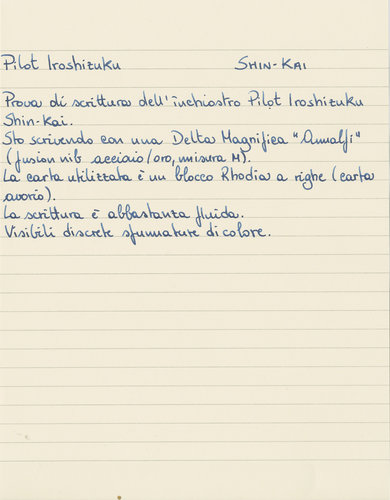 Pilot Iroshizuku SHIN-KAI
Prova di scrittura dell'inchiostro Pilot Iroshizuku
Shin-Kai.
Sto scrivendo con una Delta Magnifica "Amalfi"
(fusion nib acciaio/oro, misura M).
La carta utilizzata è un blocco Rhodia a righe (carta
avorio).
La scrittura è abbastanza fluida.
Visibili discrete sfumature di colore.